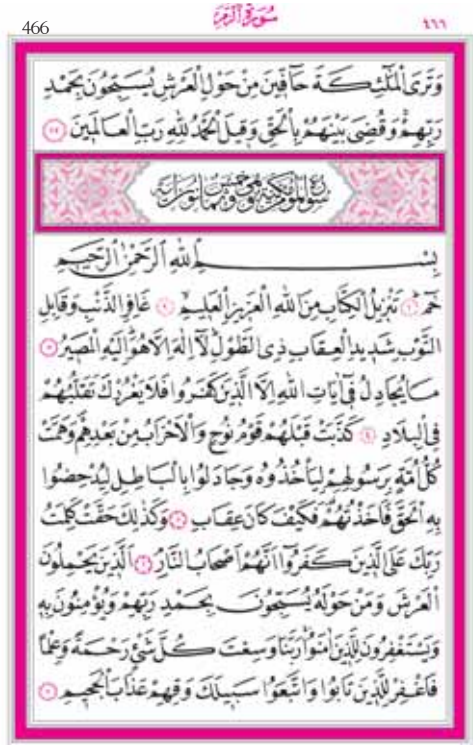 466 سُورَةُ الزُّمَر ٤٦٦
وَتَرَى الْمَلٰٓئِكَةَ حَٓافّ۪ينَ مِنْ حَوْلِ الْعَرْشِ يُسَبِّحُونَ بِحَمْدِ
رَبِّهِمْۚ وَقُضِيَ بَيْنَهُمْ بِالْحَقِّ وَق۪يلَ الْحَمْدُ لِلّٰهِ رَبِّ الْعَالَم۪ينَ ﴿٧٥﴾
بِسْمِ اللّٰهِ الرَّحْمٰنِ الرَّح۪يمِ
حٰمٓۚ ﴿١﴾ تَنْز۪يلُ الْكِتَابِ مِنَ اللّٰهِ الْعَز۪يزِ الْعَل۪يمِۙ ﴿٢﴾ غَافِرِ الذَّنْبِ وَقَابِلِ
التَّوْبِ شَد۪يدِ الْعِقَابِ ذِي الطَّوْلِۜ لَٓا اِلٰهَ اِلَّا هُوَۜ اِلَيْهِ الْمَص۪يرُ ﴿٣﴾
مَا يُجَادِلُ ف۪ٓي اٰيَاتِ اللّٰهِ اِلَّا الَّذ۪ينَ كَفَرُوا فَلَا يَغْرُرْكَ تَقَلُّبُهُمْ
فِي الْبِلَادِ ﴿٤﴾ كَذَّبَتْ قَبْلَهُمْ قَوْمُ نُوحٍ وَالْاَحْزَابُ مِنْ بَعْدِهِمْۖ وَهَمَّتْ
كُلُّ اُمَّةٍ بِرَسُولِهِمْ لِيَأْخُذُوهُ وَجَادَلُوا بِالْبَاطِلِ لِيُدْحِضُوا
بِهِ الْحَقَّ فَاَخَذْتُهُمْ فَكَيْفَ كَانَ عِقَابِ ﴿٥﴾ وَكَذٰلِكَ حَقَّتْ كَلِمَتُ
رَبِّكَ عَلَى الَّذ۪ينَ كَفَرُٓوا اَنَّهُمْ اَصْحَابُ النَّارِۢ ﴿٦﴾ اَلَّذ۪ينَ يَحْمِلُونَ
الْعَرْشَ وَمَنْ حَوْلَهُ يُسَبِّحُونَ بِحَمْدِ رَبِّهِمْ وَيُؤْمِنُونَ بِه۪
وَيَسْتَغْفِرُونَ لِلَّذ۪ينَ اٰمَنُواۚ رَبَّنَا وَسِعْتَ كُلَّ شَيْءٍ رَحْمَةً وَعِلْمًا
فَاغْفِرْ لِلَّذ۪ينَ تَابُوا وَاتَّبَعُوا سَب۪يلَكَ وَقِهِمْ عَذَابَ الْجَح۪يمِ ﴿٧﴾